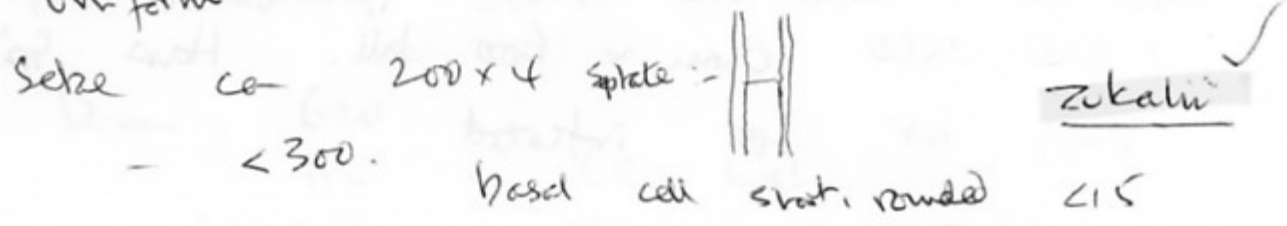 Setae ca 200 x 4 septate :- Zukalii ✓
- < 300.
basal cell short, rounded <15